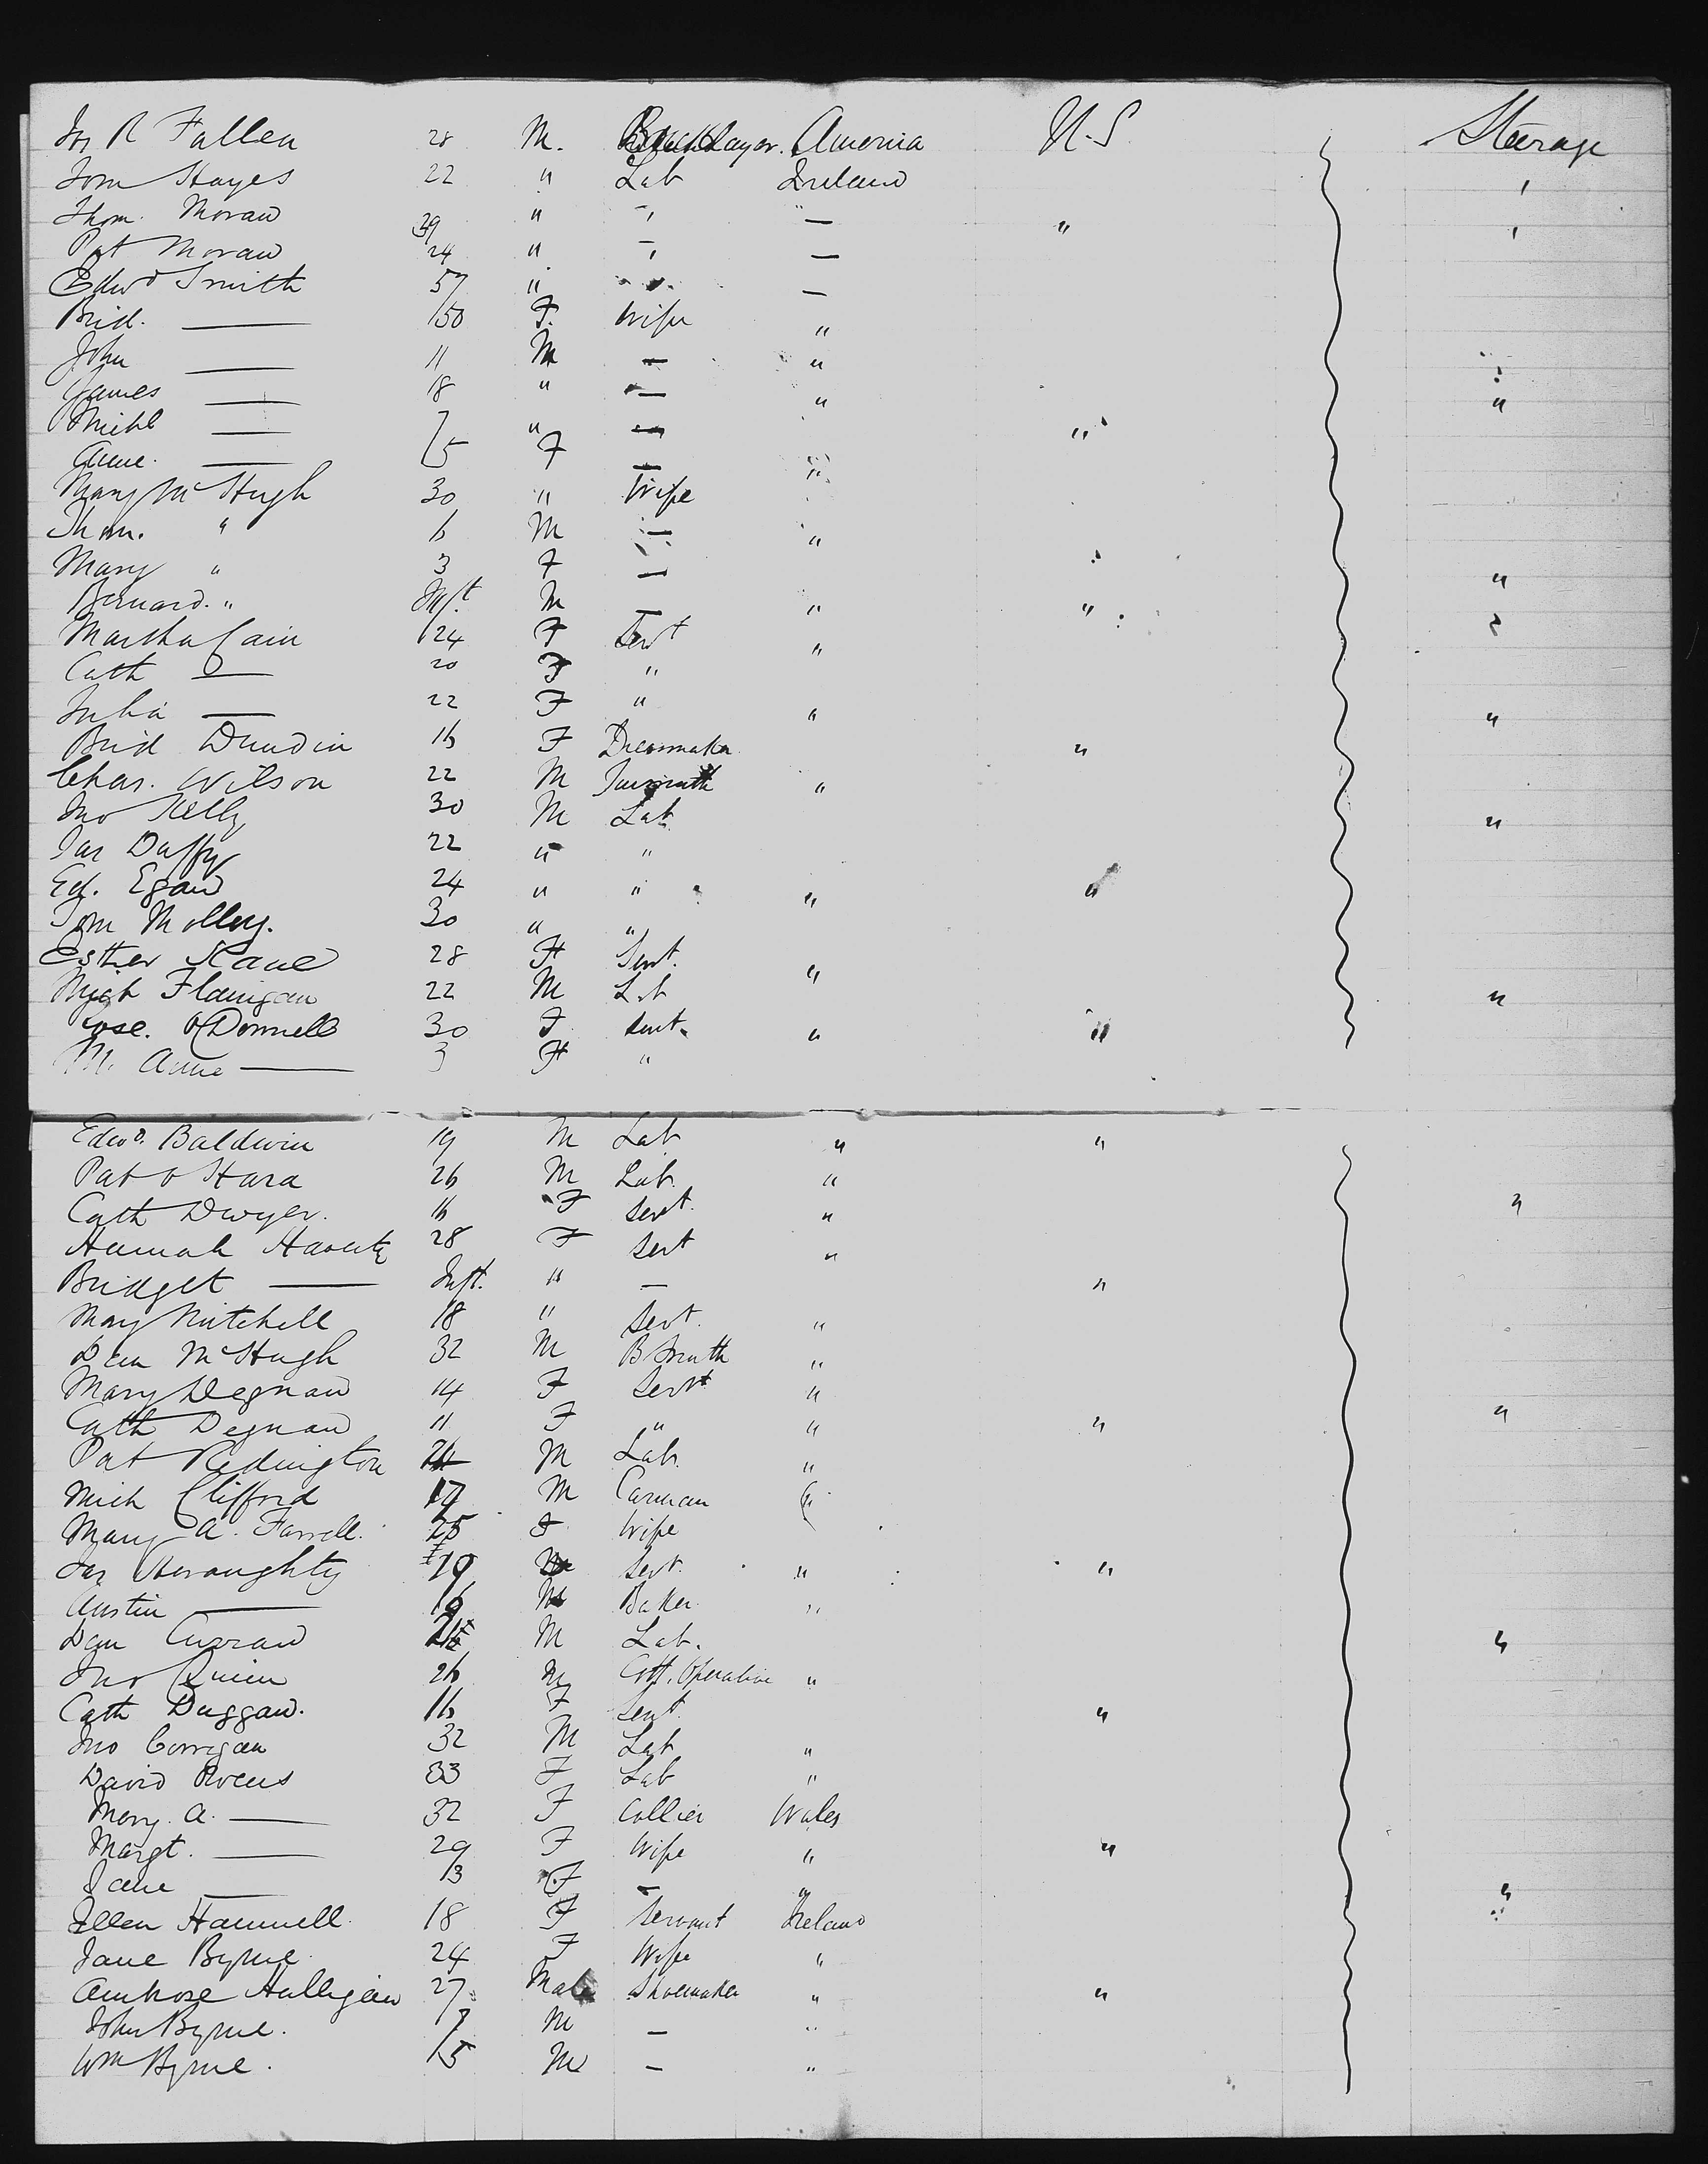 Jos R Fallen 28 M. Bricklayer. America U.S Steerage
Tom Hayes 22 " Lab Ireland "
Thom. Moran 39 " " — " "
Pat Moran 24 " " —
Edwd Smith 57 " " —
Brid. — 50 F. Wife "
John — 11 M — "
James — 18 " — " "
Michl — 7 " — "
Anne. — 5 F — "
Mary McHugh 30 " Wife
Thom. " 6 M — "
Mary " 3 F — "
Bernard. " Inft M — " "
Martha Cain 24 F Servt "
Cath — 20 F "
Julia — 22 F " " "
Brid Dundin 16 F Dressmaker "
Chas. Wilson 22 M Tinsmith "
Jno Kelly 30 M Lab "
Jas Duffy 22 " "
Ed. Egan 24 " " " "
Tom Molloy. 30 " "
Esther Kane 28 F Sert. "
Mich Flanigan 22 M Lab "
Rose. O'Donnell 30 F Sert. " "
M. Anne — 3 F "
Edwd. Baldwin 19 M Lab " "
Pat O Hara 26 M Lab. "
Cath Dwyer. 16 F Servt. " "
Hannah 28 F Sert "
Bridget — Inft. " — "
Mary Mitchell 18 " Servt. "
Dan McHugh 32 M B Smith "
Mary Degnan 14 F Servt "
Cath Degnan 11 F " " " "
Pat Redington 24 M Lab. "
Mich Clifford 17 M Carman "
Mary A. Farrell. 25 F Wife
Jas Heraughty 19 M Servt. " "
Austin — 16 M Baker "
Dan Curran M Lab. "
Jno Quinn 26 M Cott. Operative "
Cath Duggan. 16 F Sert. "
Jno Corrigan 32 M Lab "
David Owens 33 F Lab "
Mary. A. — 32 F Collier Wales
Margt. — 29 F Wife " "
Jane — 3 F — " "
Ellen Hammell. 18 F Servant Ireland "
Jane Byrne. 24 F Wife "
Ambrose Halligan 27 Male Shoemaker " "
John Byrne. 7 M — "
Wm Byrne. 5 M — "